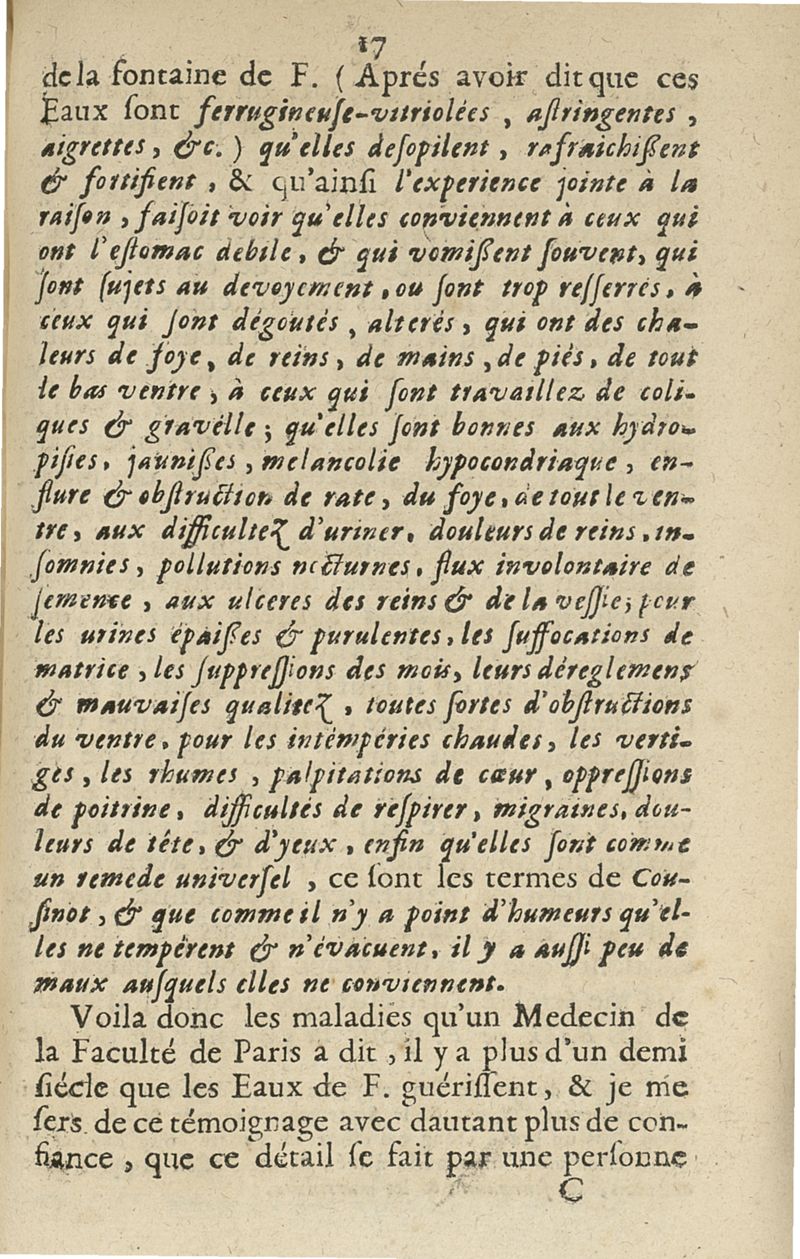 17
de la fontaine de F. ( Aprés avoir dit que ces
Eaux ſont ferrugineuſe-vitriolées , aſtringentes ,
aigrettes , &c. ) qu'elles deſopilent , rafraichiſſent
& fortifient , & qu'ainſi l'experience jointe à la
raiſon , faiſoit voir qu'elles conviennent à ceux qui
ont l'eſtomac debile , & qui vomiſſent ſouvent, qui
ſont ſujets au devoyement , ou ſont trop reſſerrés , à
ceux qui ſont dégoutés , alterés , qui ont des cha-
leurs de foye, de reins , de mains , de piés , de tout
le bas ventre , à ceux qui ſont travaillez de coli-
ques & gravélle ; qu'elles ſont bonnes aux hydro-
piſies , jauniſſes , melancolie hypocondriaque , en-
flure & obſtruction de rate , du foye , de tout le ven-
tre , aux difficultez d'uriner, douleurs de reins , in-
ſomnies , pollutions nocturnes , flux involontaire de
ſemence , aux ulceres des reins & de la veſſie; pour
les urines épaiſſes & purulentes , les ſuffocations de
matrice , les ſuppreſſions des mois, leurs déreglemens
& mauvaiſes qualitez , toutes ſortes d'obſtructions
du ventre , pour les intémpéries chaudes , les verti-
ges , les rhumes , palpitations de cœur , oppreſſions
de poitrine , difficultés de reſpirer , migraines, dou-
leurs de téte, & d'yeux , enfin qu'elles ſont comme
un remede univerſel , ce ſont les termes de Cou-
ſinot , & que comme il n'y a point d'humeurs qu'el-
les ne tempérent & n'évacuent , il y a auſſi peu de
maux auſquels elles ne conviennent.
Voila donc les maladies qu'un Medecin de
la Faculté de Paris a dit , il y a plus d'un demi
ſiécle que les Eaux de F. guériſſent , & je me
ſers de ce témoignage avec dautant plus de con-
fiance , que ce détail ſe fait par une perſonne
C